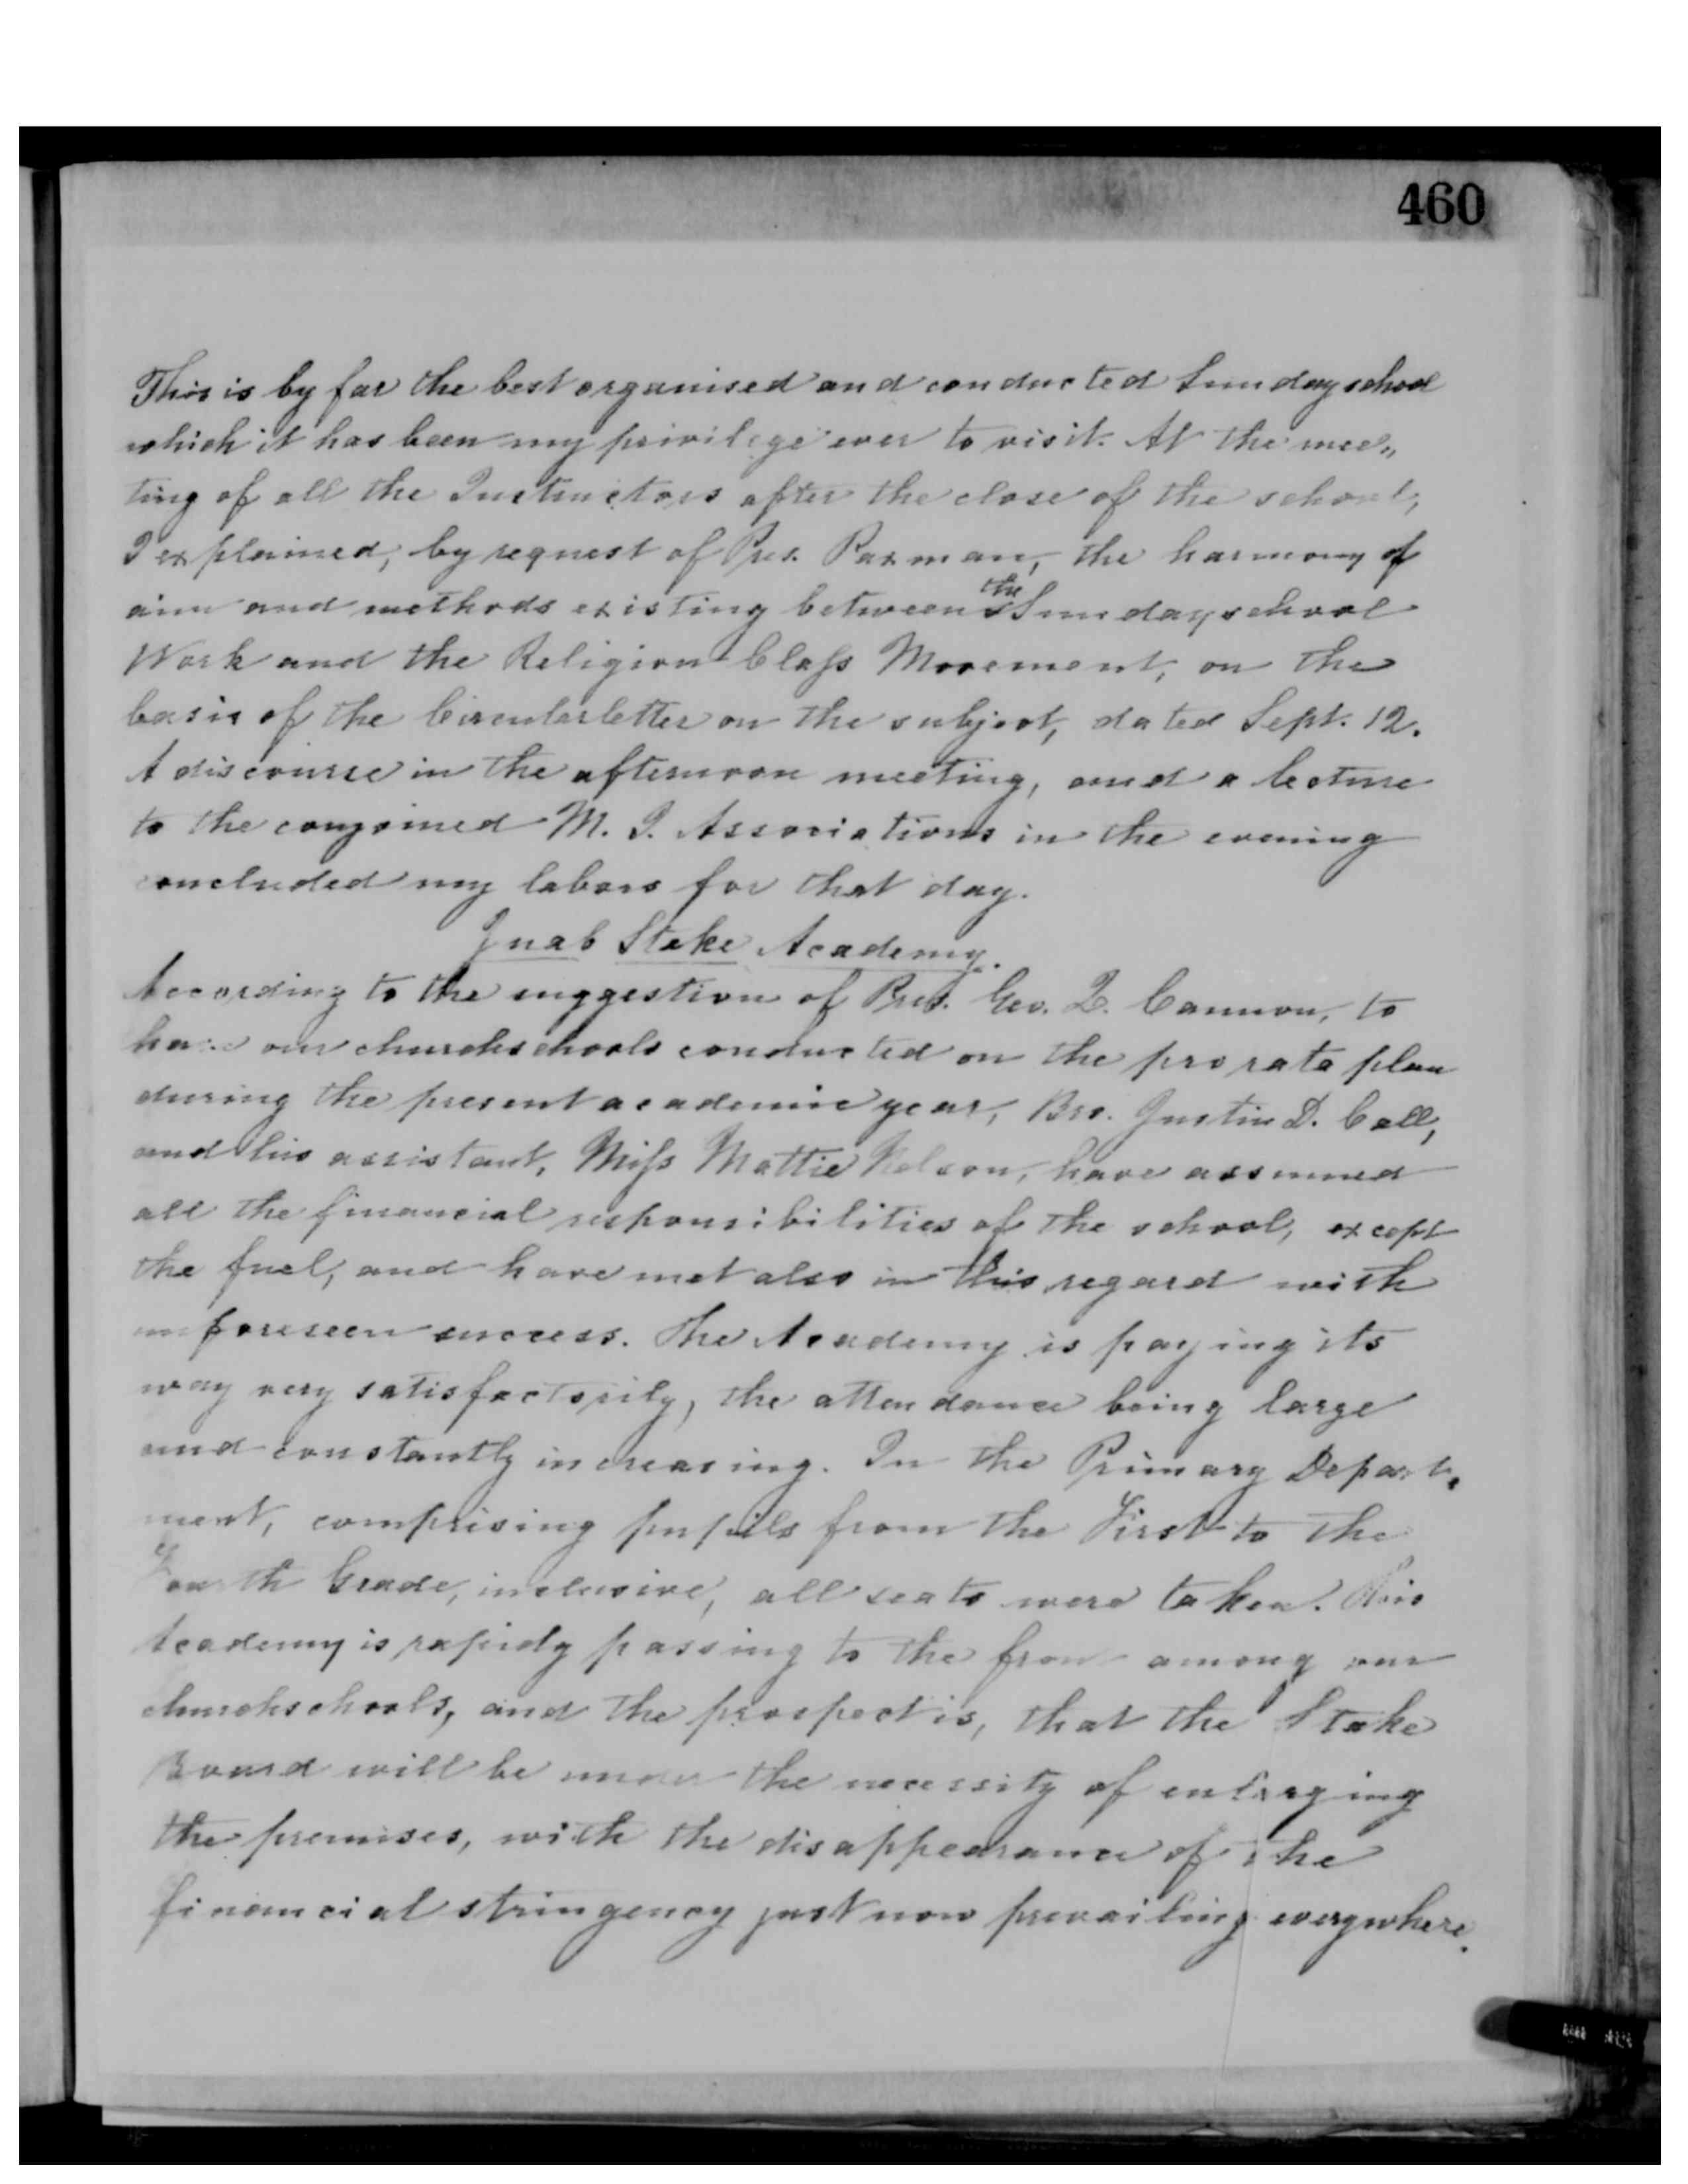 460
This is by far the best organised and conducted Sunday school
which it has been my privilege ever to visit. At the mee„
ting of all the Instructors after the close of the school,
I explained, by request of Pres. Paxman, the harmony of
aim and methods existing between the Sunday school
Work and the Religion Class Movement, on the
basis of the Circularletter on the subject, dated Sept. 12.
A discourse in the afternoon meeting, and a lecture
to the conjoined M. I. Associations in the evening
concluded my labors for that day.
Juab Stake Academy.
According to the suggestion of Pres. Geo. Q. Cannon, to
have our churchschools conducted on the pro rata plan
during the present academic year, Bro. Justin D. Call,
and his assistant, Miss Mattie Nelson, have assumed
all the financial responsibilities of the school, except
the fuel, and have met also in this regard with
unforeseen success. The Academy is paying its
way very satisfactorily, the attendance being large
and constantly increasing. In the Primary Depart„
ment, comprising pupils from the First to the
Fourth Grade, inclusive, all seats were taken. This
Academy is rapidy passing to the front among our
churchschools, and the prospect is, that the Stake
Board will be under the necessity of enlarging
the premises, with the disappearance of the
financial stringency just now prevailing everywhere.